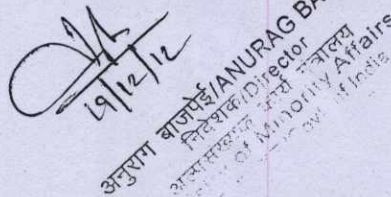 19/12/12
अनुराग बाजपेई/ANURAG BA
निदेशक/Director
अल्पसंख्यक कार्य मंत्रालय
of Minority Affairs
Govt of India